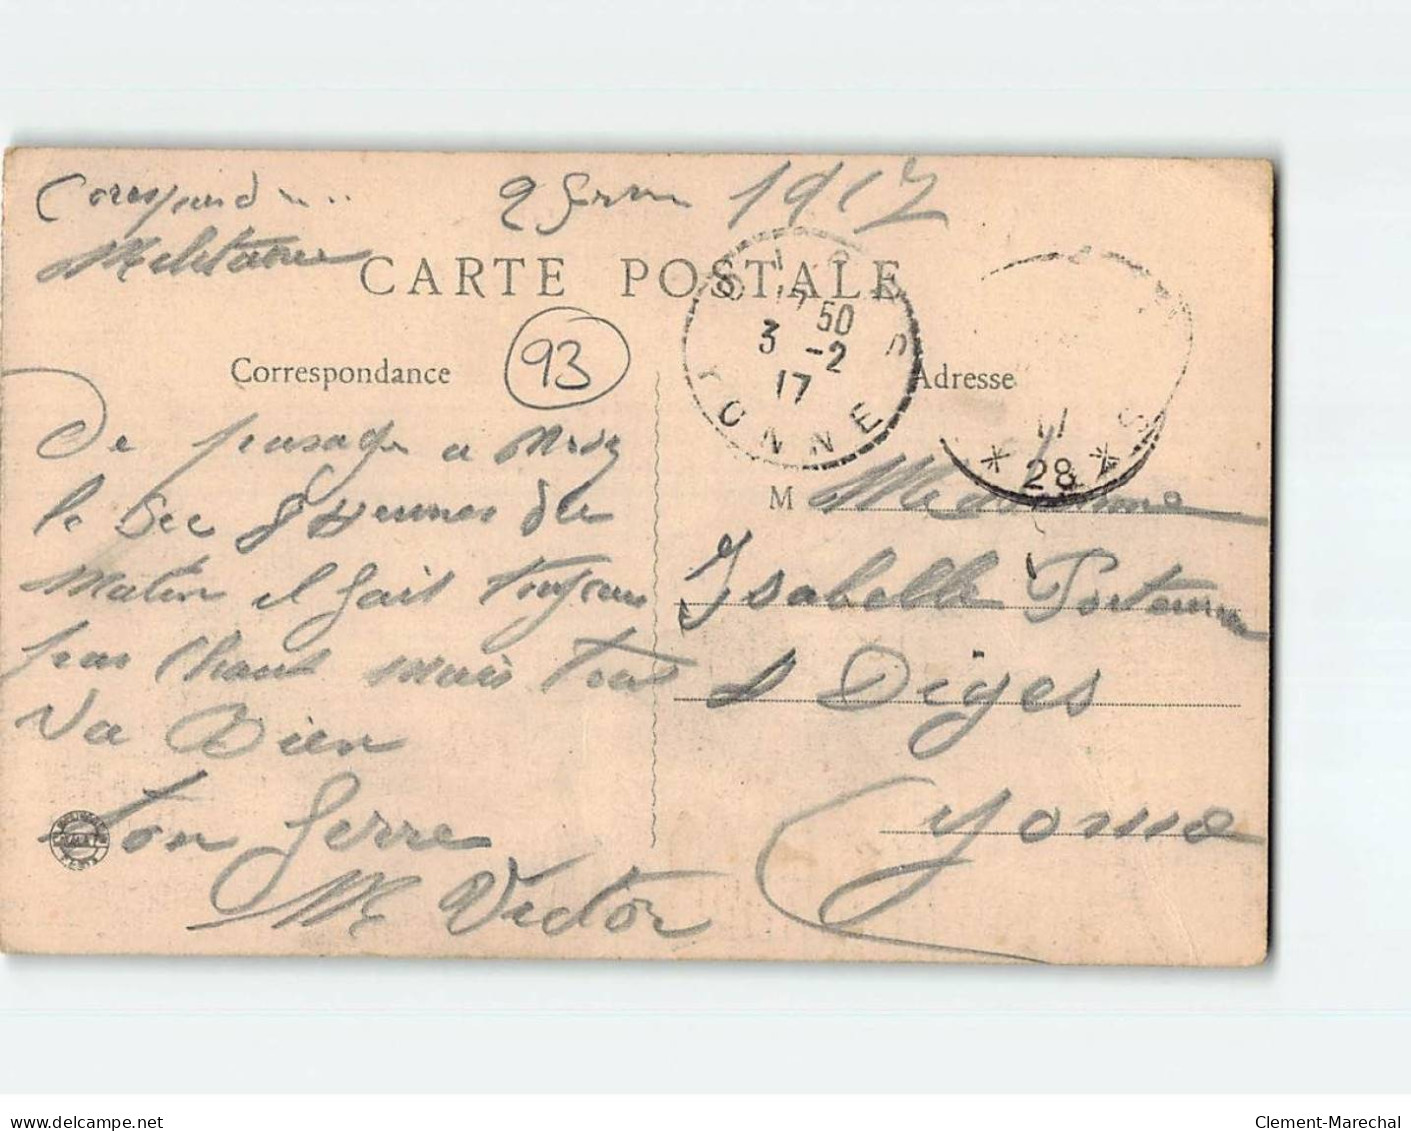 Correspond...
Militaire
2 fevrier 1917
CARTE POSTALE
Correspondance
93
De passage a Noisy
le Sec 8 heures du
Matin il fait toujours
pas Chaud mais tout
Va Bien
Ton frere
Victor
17 50
3 -2
17
YONNE
Adresse
* 28 *
M Madame
Isabelle
a Diges
Yonne
delcampe.net
Clement-Marechal